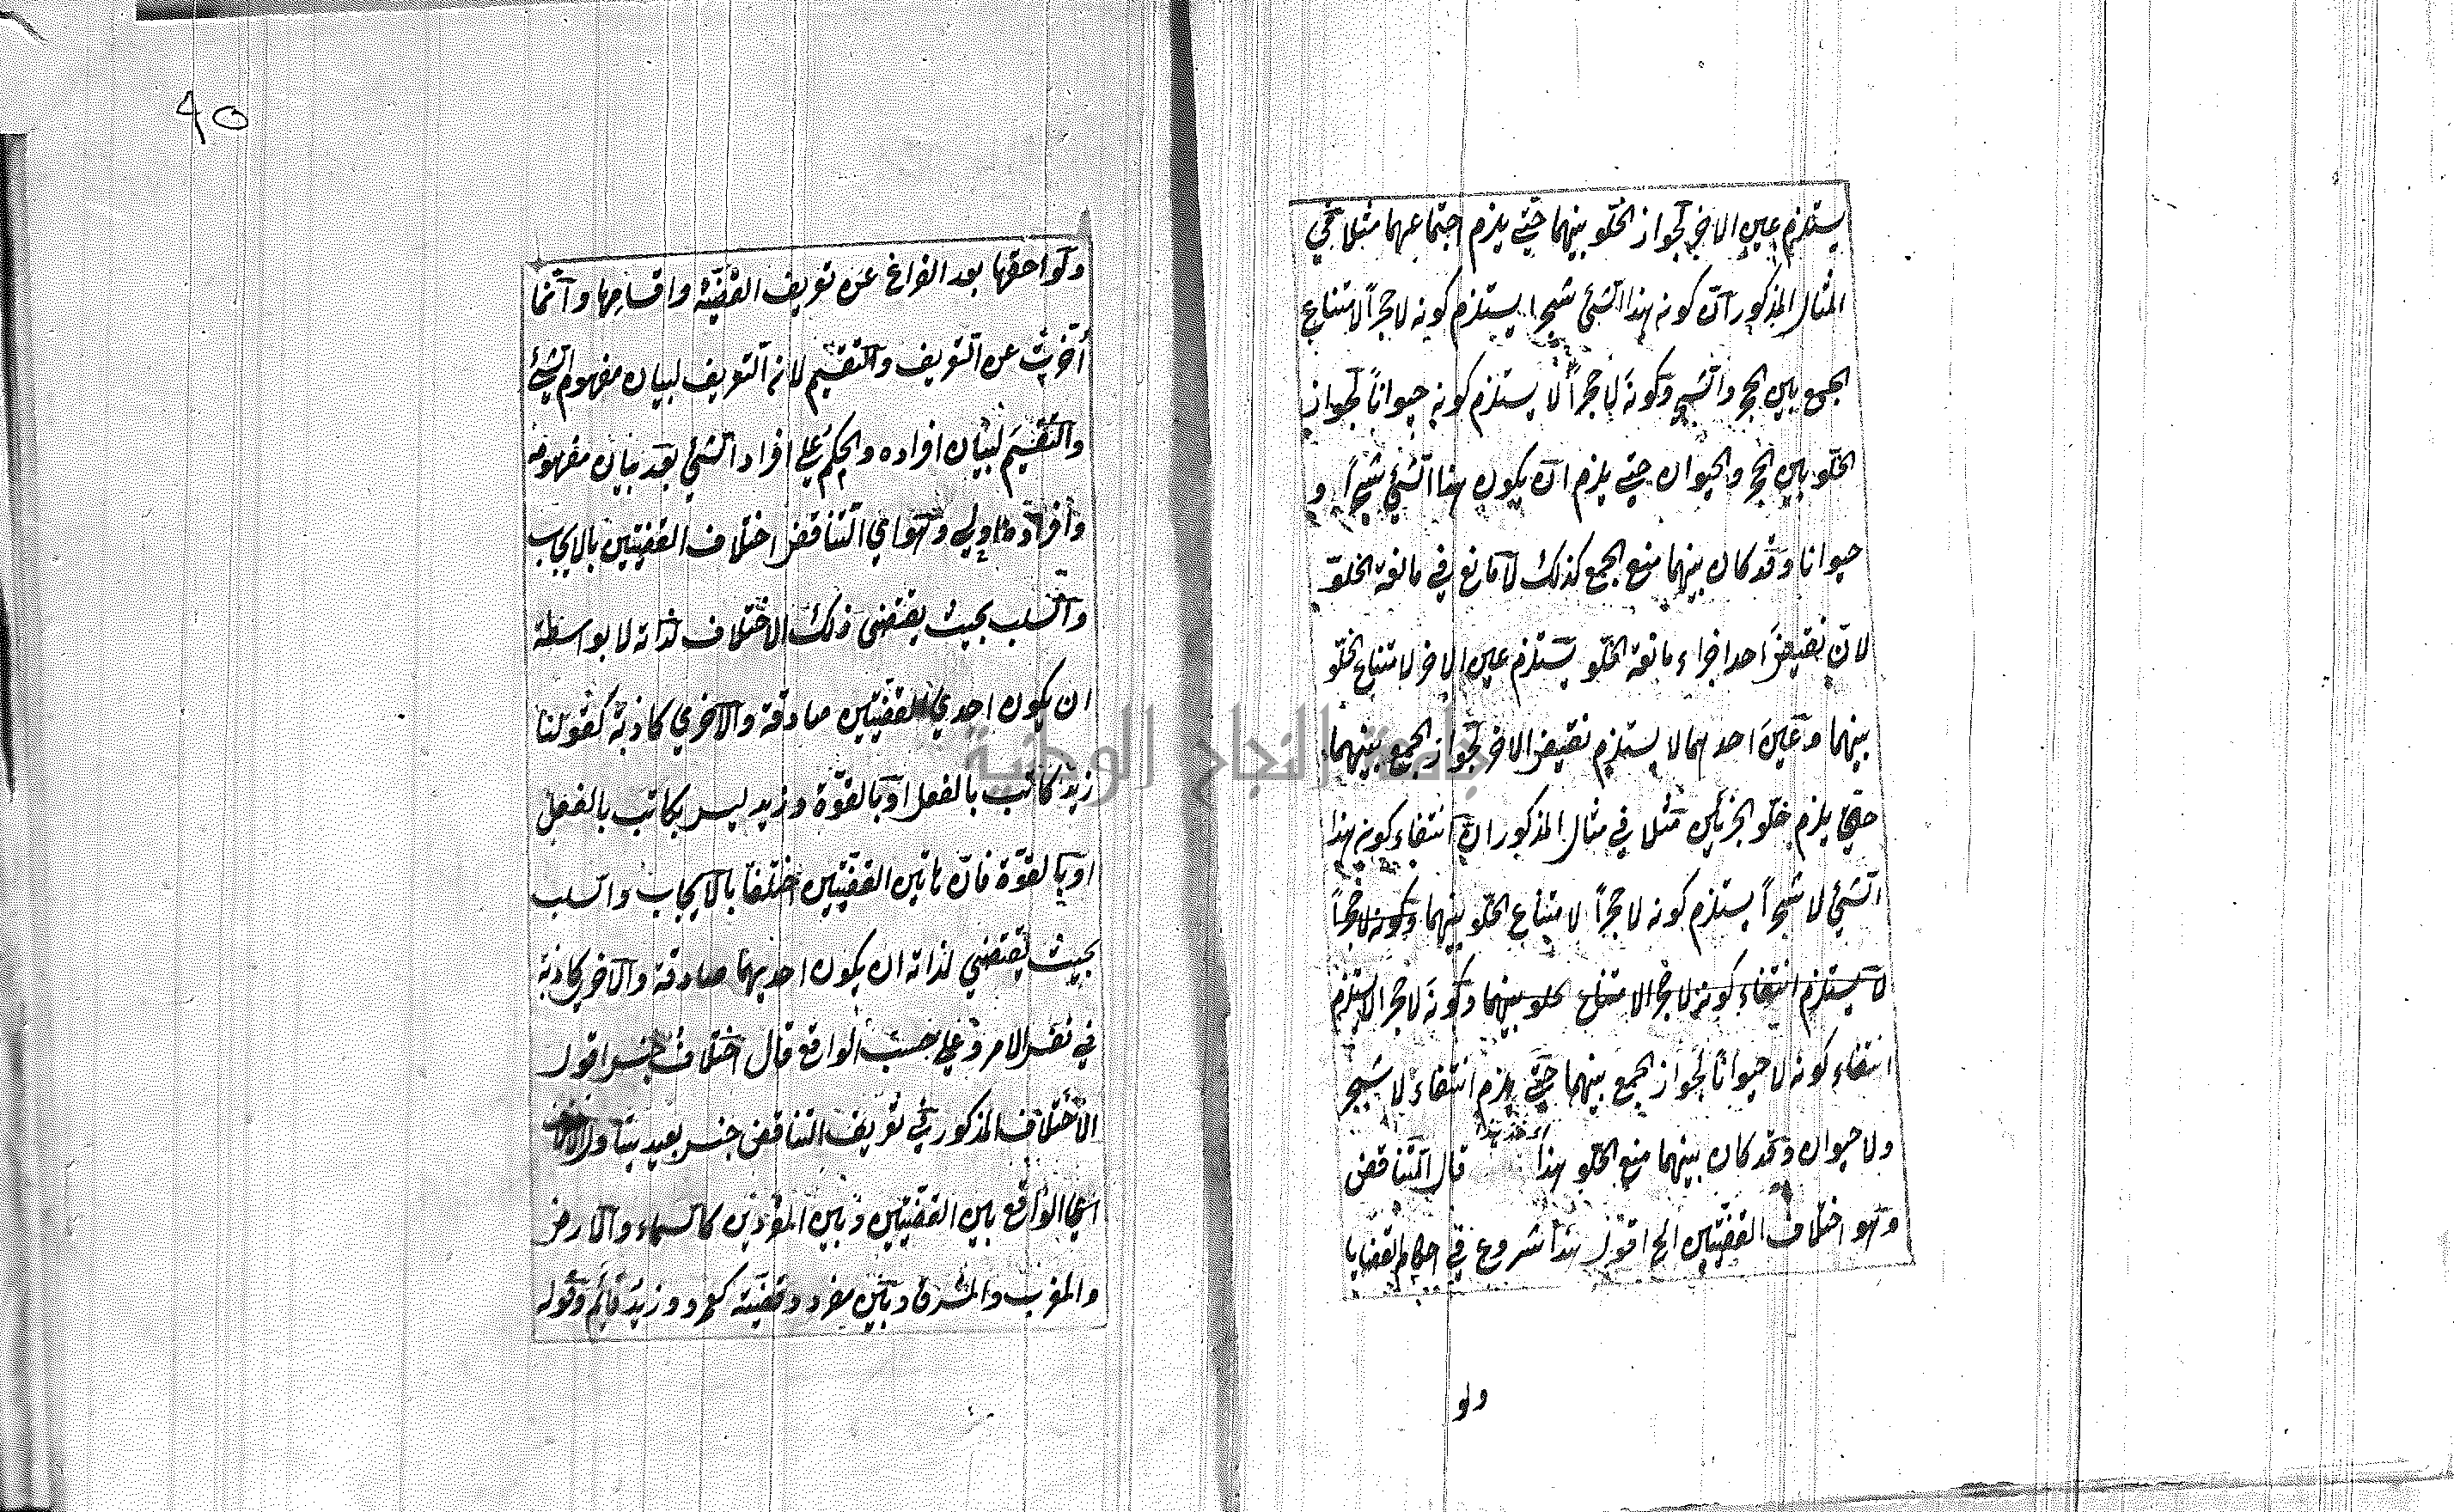 يستلزم عين الاخر لجواز الخلو بينهما حتى يلزم اجتماعهما مثلا في
المثال المذكور ان كونه هذا الشئ شجرا يستلزم كونه لا حجراً لامتناع
الجمع بين الحجر والشجر وكونه لا حجراً لا يستلزم كونه حيواناً لجواز
الخلو بين الحجر والحيوان حتى يلزم ان يكون هذا الشئ شجراً و
حيوانا وقد كان بينهما منع الجمع كذلك لا مانع في مانعة الخلو
لان نقيض احد اجزاء مانعة الخلو يستلزم عين الاخر لامتناع الخلو
بينهما وعين احدهما لا يستلزم نقيض الاخر لجواز الجمع بينهما
حتى يلزم خلو الجزئين مثلا في مثال المذكور ان انتفاء كونه هذا
الشئ لا شجراً يستلزم كونه لا حجراً لامتناع الخلو بينهما وكونه لا حجراً
لا يستلزم انتفاء كونه لا حجرا لامتناع الخلو بينهما وكونه لا حجرا لا يستلزم
انتفاء كونه لا حيواناً لجواز الجمع بينهما حتى يلزم انتفاء لا شجر
ولا حيوان وقد كان بينهما منع الخلو هذا قال التناقض
وهو اختلاف القضيتين الخ اقول هذا شروع في احكام القضايا
ولو
٤٥
ولواحقها بعد الفراغ عن تعريف القضية واقسامها وانما
أخرت عن التعريف والتقسيم لانه التعريف لبيان مفهوم الشئ
والتقسيم لبيان افراده والحكم على افراد الشئ بعد بيان مفهومه
وافراده اولى وهو اي التناقض اختلاف القضيتين بالايجاب
والسلب بحيث يقتضى ذلك الاختلاف لذاته لا بواسطة
ان يكون احدي القضيتين صادقة والاخري كاذبة كقولنا
زيد كاتب بالفعل او بالقوة وزيد ليس بكاتب بالفعل
او بالقوة فان هاتين القضيتين اختلفا بالايجاب والسلب
بحيث يقتضي لذاته ان يكون احديهما صادقة والاخري كاذبة
في نفس الامر وعلى حسب الواقع قال اختلاف جنس اقول
الاختلاف المذكور في تعريف التناقض جنس بعيد يتناول
اي الواقع بين القضيتين وبين المفردين كالسماء والارض
والمغرب والمشرق وبين مفرد وقضية كعمرو وزيد قائم وقوله
جامعة النجاح الوطنية